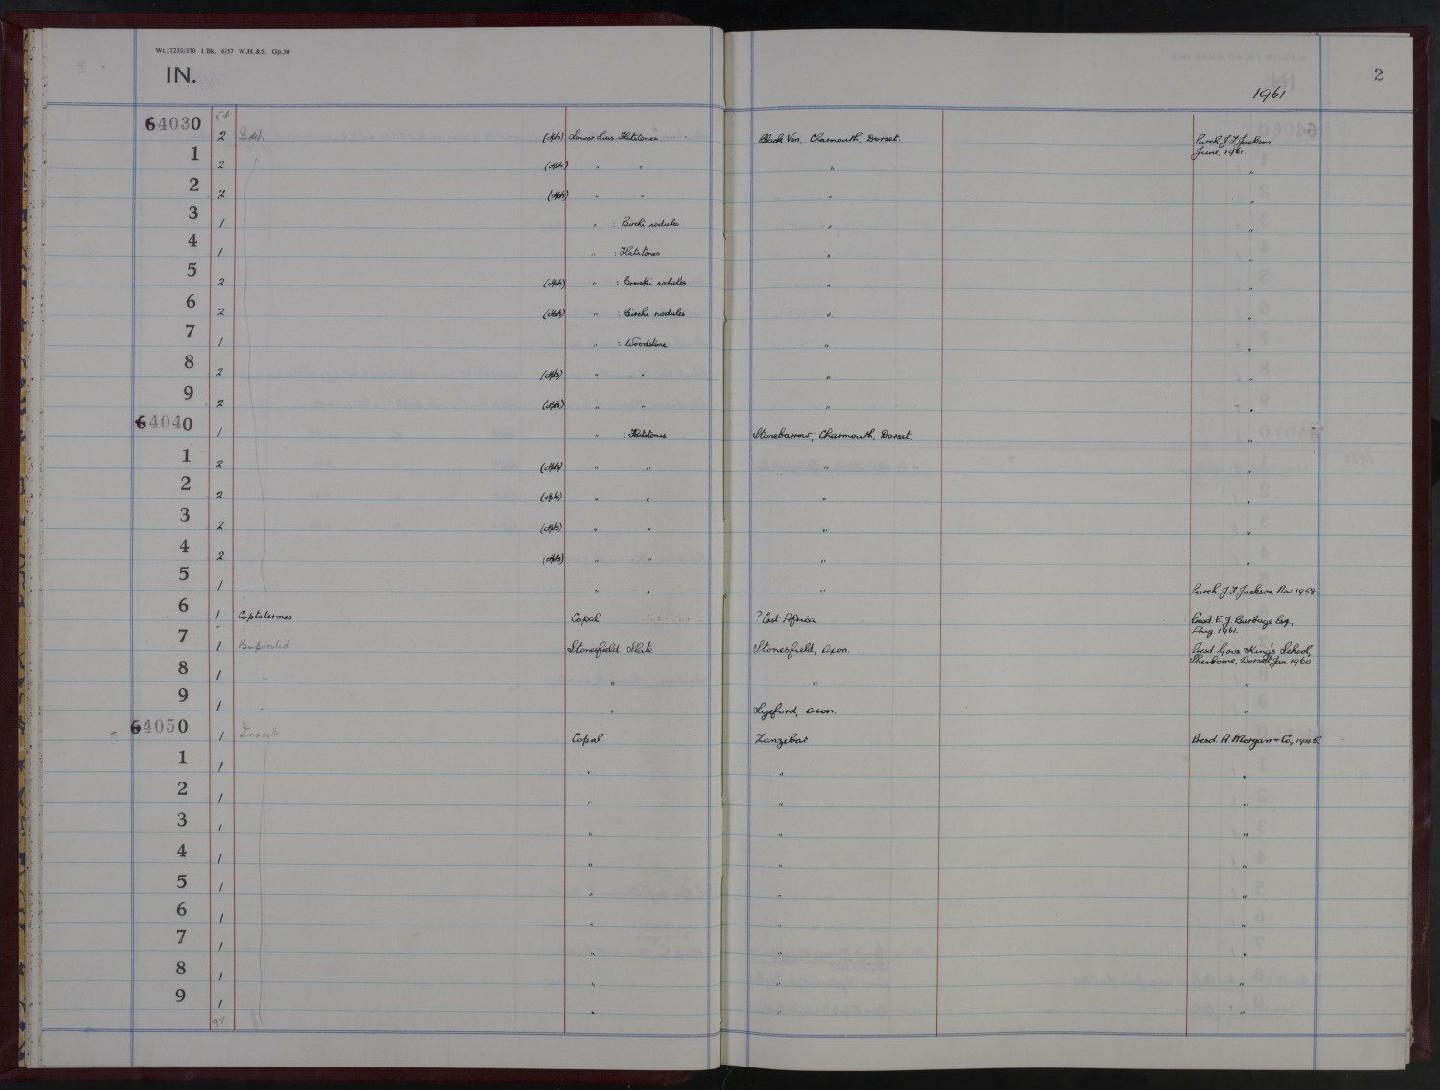 Wt. 7233/370 1 Bk. 6/57 W.H.&S. Gp.36
IN.
2
1961
64030 2 Indet. (Apts) Lower Lias Flatstones Black Ven, Charmouth, Dorset. Purch J.F. Jackson
June, 1961
1 2 (Apts) " " " "
2 2 (Apts) " " " "
3 1 " : Birchi nodules " "
4 1 " : Flatstones " "
5 2 (Apts) " : nodules " "
6 2 (Apts) " : Birchi nodules " "
7 1 " : Woodstone " "
8 2 (Apts) " " " "
9 2 (Apts) " " " "
64040 1 " : Flatstones Stonebarrow, Charmouth, Dorset. "
1 2 (Apts) " " " "
2 2 (Apts) " " " "
3 2 (Apts) " " " "
4 2 (Apts) " " " "
5 1 " " " Purch J.F. Jackson 1959
6 1 Coptotermes Copal ? East Africa Presd E.J. Burbage Esq.,
Aug 1961.
7 1 Buprestid Stonesfield Slate Stonesfield, Oxon. Presd Govs King's School,
Sherborne, Dorset Jan 1960
8 1 " " " "
9 1 " " Oxon. "
64050 1 Insect Copal Zanzibar Presd. A. Morgan & Co, 1948.
1 1 " " "
2 1 " " "
3 1 " " "
4 1 " " "
5 1 " " "
6 1 " " "
7 1 " " "
8 1 " " "
9 1 " " "